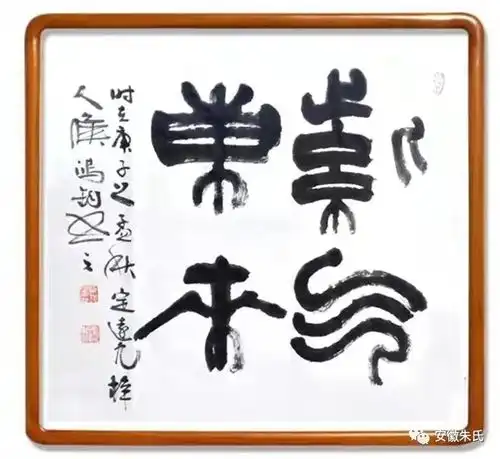 紫气
東来
时在庚子之孟秋定遠
人 鸿钧书之
安徽朱氏